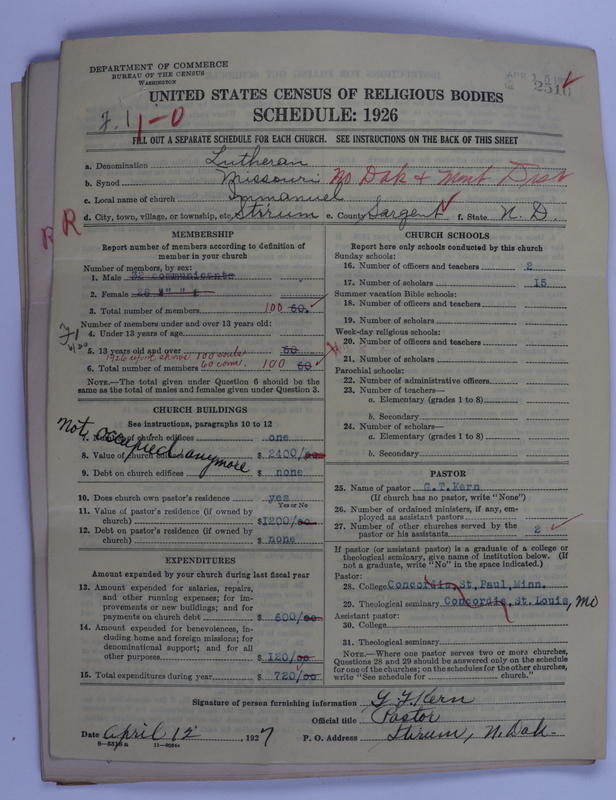 DEPARTMENT OF COMMERCE
BUREAU OF THE CENSUS
WASHINGTON
2510
UNITED STATES CENSUS OF RELIGIOUS BODIES
SCHEDULE: 1926
1-0
FILL OUT A SEPARATE SCHEDULE FOR EACH CHURCH. SEE INSTRUCTIONS ON THE BACK OF THIS SHEET
a. Denomination Lutheran
b. Synod Missouri No Dak & Mont Dist
c. Local name of church Immanuel
d. City, town, village, or township, etc. Stirum e. County Sargent f. State N. D.
R R
MEMBERSHIP
Report number of members according to definition of member in your church
Number of members, by sex:
1. Male 32 communicants
2. Female 28 " " "
3. Total number of members 100 60.
Number of members under and over 13 years old:
4. Under 13 years of age
5. 13 years old and over 60
1926 report shows 100 souls
60 com.
6. Total number of members 100 60
NOTE.—The total given under Question 6 should be the same as the total of males and females given under Question 3.
CHURCH BUILDINGS
See instructions, paragraphs 10 to 12
Not occupied anymore
7. Number of church edifices one
8. Value of church edifices $ 2400/00
9. Debt on church edifices $ none
10. Does church own pastor's residence yes
Yes or No
11. Value of pastor's residence (if owned by church) $1200/00
12. Debt on pastor's residence (if owned by church) $ none
EXPENDITURES
Amount expended by your church during last fiscal year
13. Amount expended for salaries, repairs, and other running expenses; for improvements or new buildings; and for payments on church debt $ 600/00
14. Amount expended for benevolences, including home and foreign missions; for denominational support; and for all other purposes $ 120/00
15. Total expenditures during year $ 720/00
CHURCH SCHOOLS
Report here only schools conducted by this church
Sunday schools:
16. Number of officers and teachers 2
17. Number of scholars 15
Summer vacation Bible schools:
18. Number of officers and teachers
19. Number of scholars
Week-day religious schools:
20. Number of officers and teachers
21. Number of scholars
Parochial schools:
22. Number of administrative officers
23. Number of teachers—
a. Elementary (grades 1 to 8)
b. Secondary
24. Number of scholars—
a. Elementary (grades 1 to 8)
b. Secondary
PASTOR
25. Name of pastor G.T.Kern
(If church has no pastor, write "None")
26. Number of ordained ministers, if any, employed as assistant pastors
27. Number of other churches served by the pastor or his assistants 2
If pastor (or assistant pastor) is a graduate of a college or theological seminary, give name of institution below. (If not a graduate, write "No" in the space indicated.)
Pastor:
28. College Concordia St, Paul, Minn.
29. Theological seminary Concordia, St. Louis, Mo
Assistant pastor:
30. College
31. Theological seminary
NOTE.—Where one pastor serves two or more churches, Questions 28 and 29 should be answered only on the schedule for one of the churches; on the schedules for the other churches, write "See schedule for church."
Signature of person furnishing information G. T. Kern
Official title Pastor
Date April 12, 1927 P. O. Address Stirum, N. Dak.